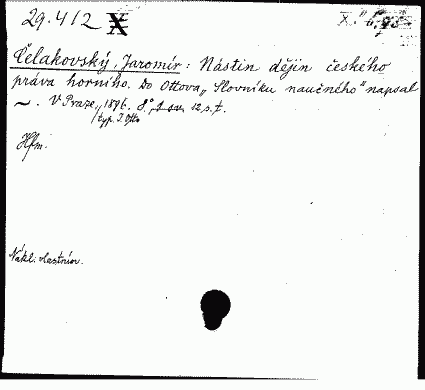 29.412 X
Čelakovský, Jaromír: Nástin dějin českého
práva horního. Do Ottova „Slovníku naučného" napsal
~. V Praze, 1896. 8°, 1 sv. 12 s. †.
typ. J. Otto
Hfm.
Nákl. vlastním.